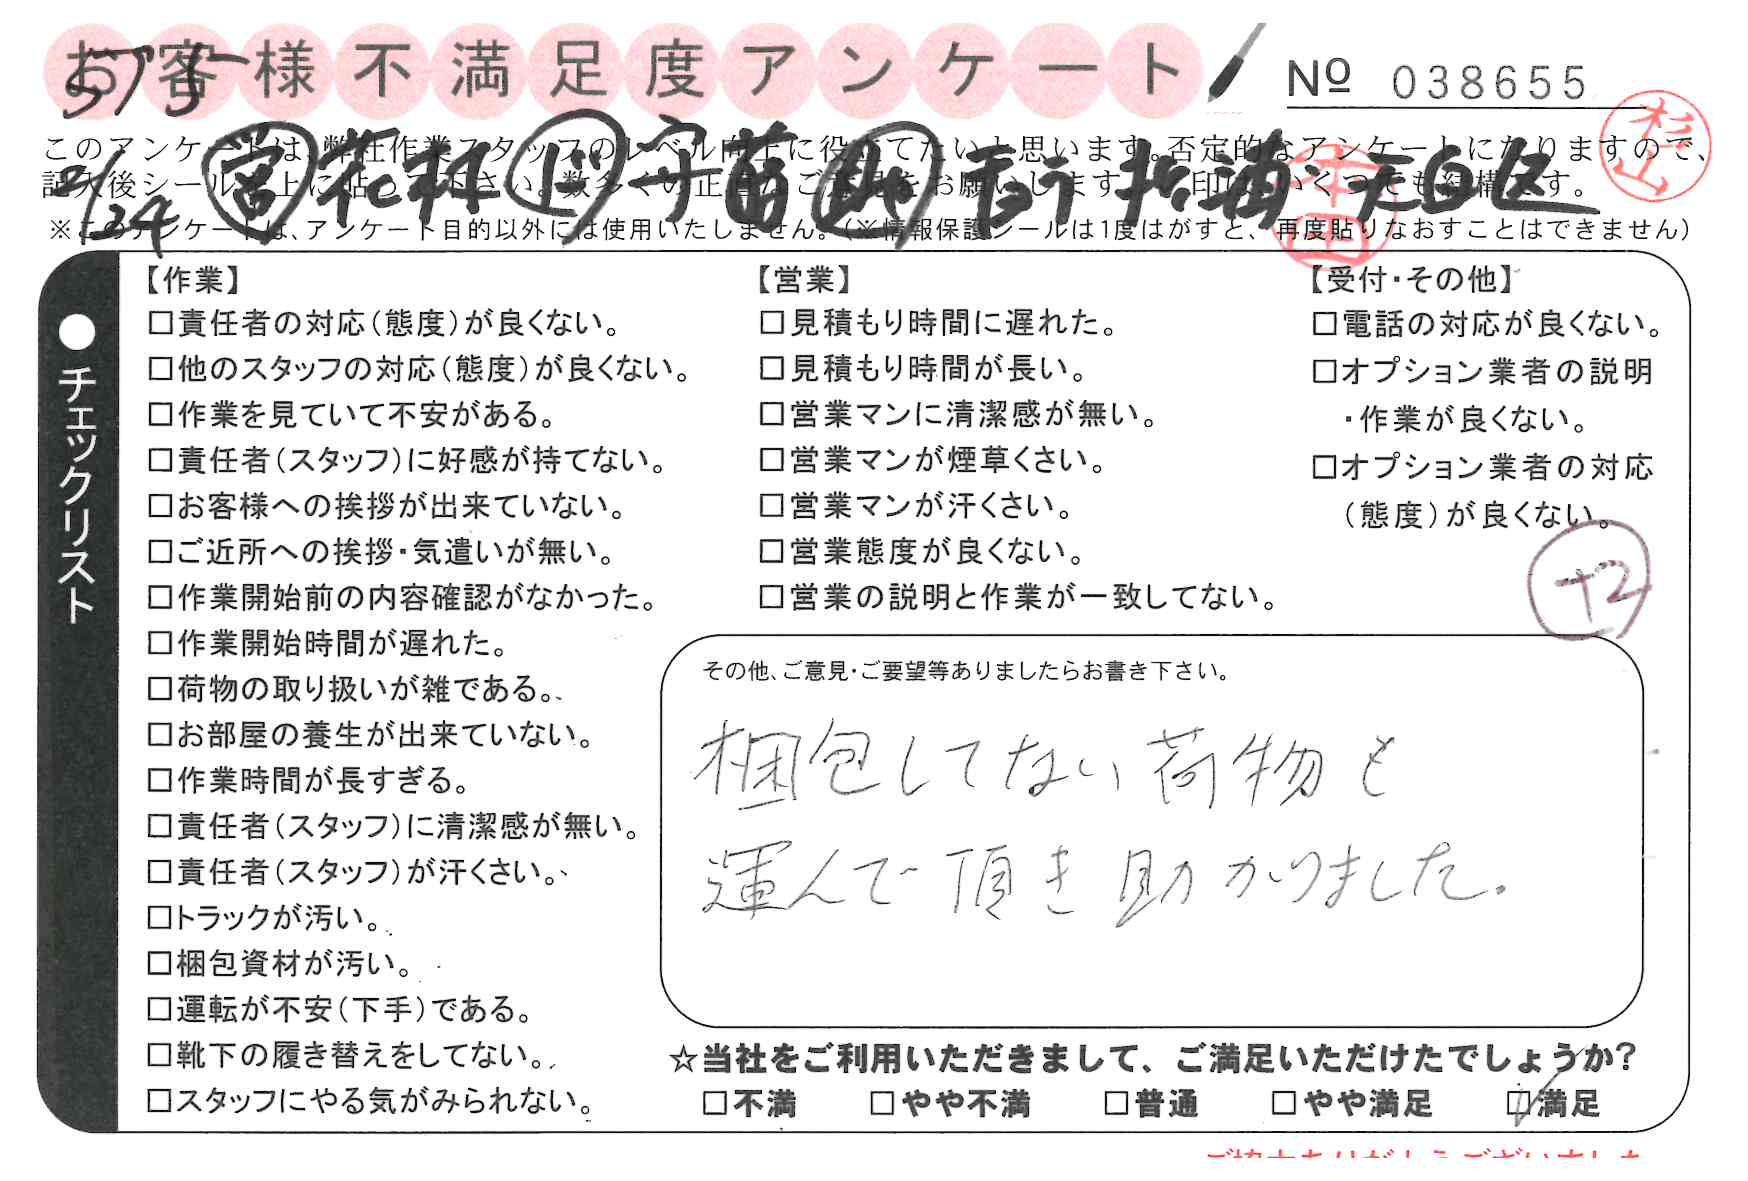 お客様不満足度アンケート
No 038655
杉山
このアンケートは、弊社作業スタッフのレベル向上に役立てたいと思います。否定的なアンケートになりますので、
記入後シールを上に貼って下さい。数多くの正直なご意見をお願いします。 印は、いくつでも結構です。
※このアンケートは、アンケート目的以外には使用いたしません。(※情報保護シールは1度はがすと、再度貼りなおすことはできません)
●チェックリスト
【作業】
□責任者の対応(態度)が良くない。
□他のスタッフの対応(態度)が良くない。
□作業を見ていて不安がある。
□責任者(スタッフ)に好感が持てない。
□お客様への挨拶が出来ていない。
□ご近所への挨拶・気遣いが無い。
□作業開始前の内容確認がなかった。
□作業開始時間が遅れた。
□荷物の取り扱いが雑である。
□お部屋の養生が出来ていない。
□作業時間が長すぎる。
□責任者(スタッフ)に清潔感が無い。
□責任者(スタッフ)が汗くさい。
□トラックが汚い。
□梱包資材が汚い。
□運転が不安(下手)である。
□靴下の履き替えをしてない。
□スタッフにやる気がみられない。
【営業】
□見積もり時間に遅れた。
□見積もり時間が長い。
□営業マンに清潔感が無い。
□営業マンが煙草くさい。
□営業マンが汗くさい。
□営業態度が良くない。
□営業の説明と作業が一致してない。
【受付・その他】
□電話の対応が良くない。
□オプション業者の説明
・作業が良くない。
□オプション業者の対応
(態度)が良くない。
+2
その他、ご意見・ご要望等ありましたらお書き下さい。
梱包してない荷物も
運んで頂き助かりました。
☆当社をご利用いただきまして、ご満足いただけたでしょうか?
□不満 □やや不満 □普通 □やや満足 ☑満足
ご協力ありがとうございました